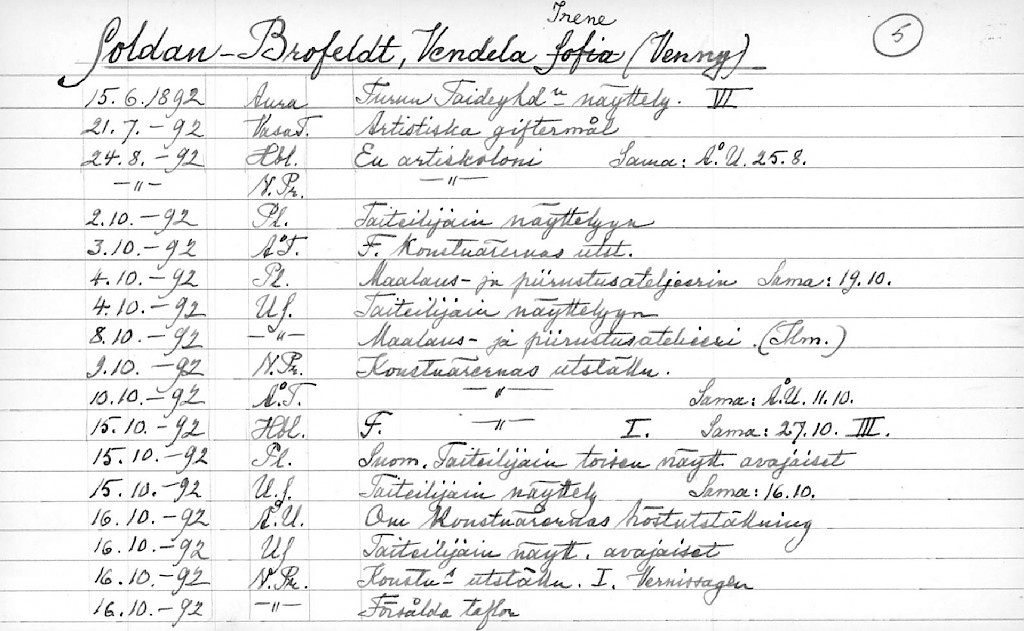 Irene
Soldan-Brofeldt, Vendela Sofia (Venny) 5
15.6.1892 Aura Turun Taideyhd:n näyttely. VI
21.7.-92 Vasa T. Artistiska giftermål
24.8.-92 Hbl. En artistkoloni Sama: Å.U. 25.8.
-"- N.Pr. -"-
2.10.-92 Pl. Taiteilijain näyttelyyn
3.10.-92 Å.T. F. Konstnärernas utst.
4.10.-92 Pl. Maalaus- ja piirustusateljeerin Sama: 19.10.
4.10.-92 U.S. Taiteilijain näyttelyyn
8.10.-92 -"- Maalaus- ja piirustusatelieeri. (Ilm.)
9.10.-92 N.Pr. Konstnärernas utställn.
10.10.-92 Å.T. -"- Sama: Å.U. 11.10.
15.10.-92 Hbl. F. -"- I. Sama: 27.10. III.
15.10.-92 Pl. Suom. Taiteilijain toisen näytt. avajaiset
15.10.-92 U.S. Taiteilijain näyttely Sama: 16.10.
16.10.-92 Å.U. Om Konstnärernas höstutställning
16.10.-92 US Taiteilijain näytt. avajaiset
16.10.-92 N.Pr. Konstn:s utställn. I. Vernissagen
16.10.-92 -"- Försålda taflor